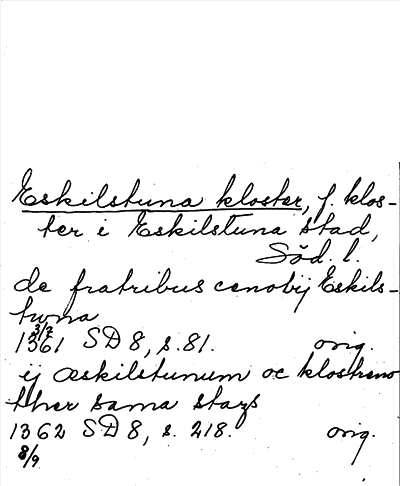 Eskilstuna kloster, f. klos-
ter i Eskilstuna stad,
Söd. l.
de fratribus cenobij Eskils-
tuna
3/7
1361 SD 8, s. 81. orig.
ij æskilstunum oc klostreno
ther sama stazs
1362 SD 8, s. 218. orig.
8/9